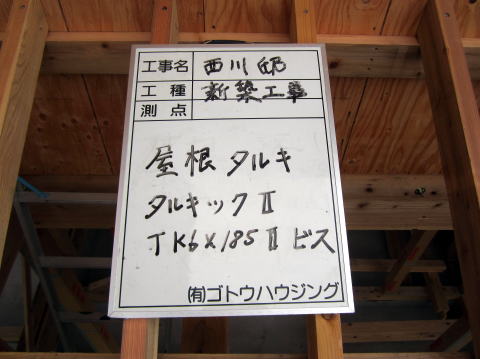 工事名 西川邸
工種 新築工事
測点
屋根タルキ
タルキックⅡ
TK6×185Ⅱ ビス
(有)ゴトウハウジング